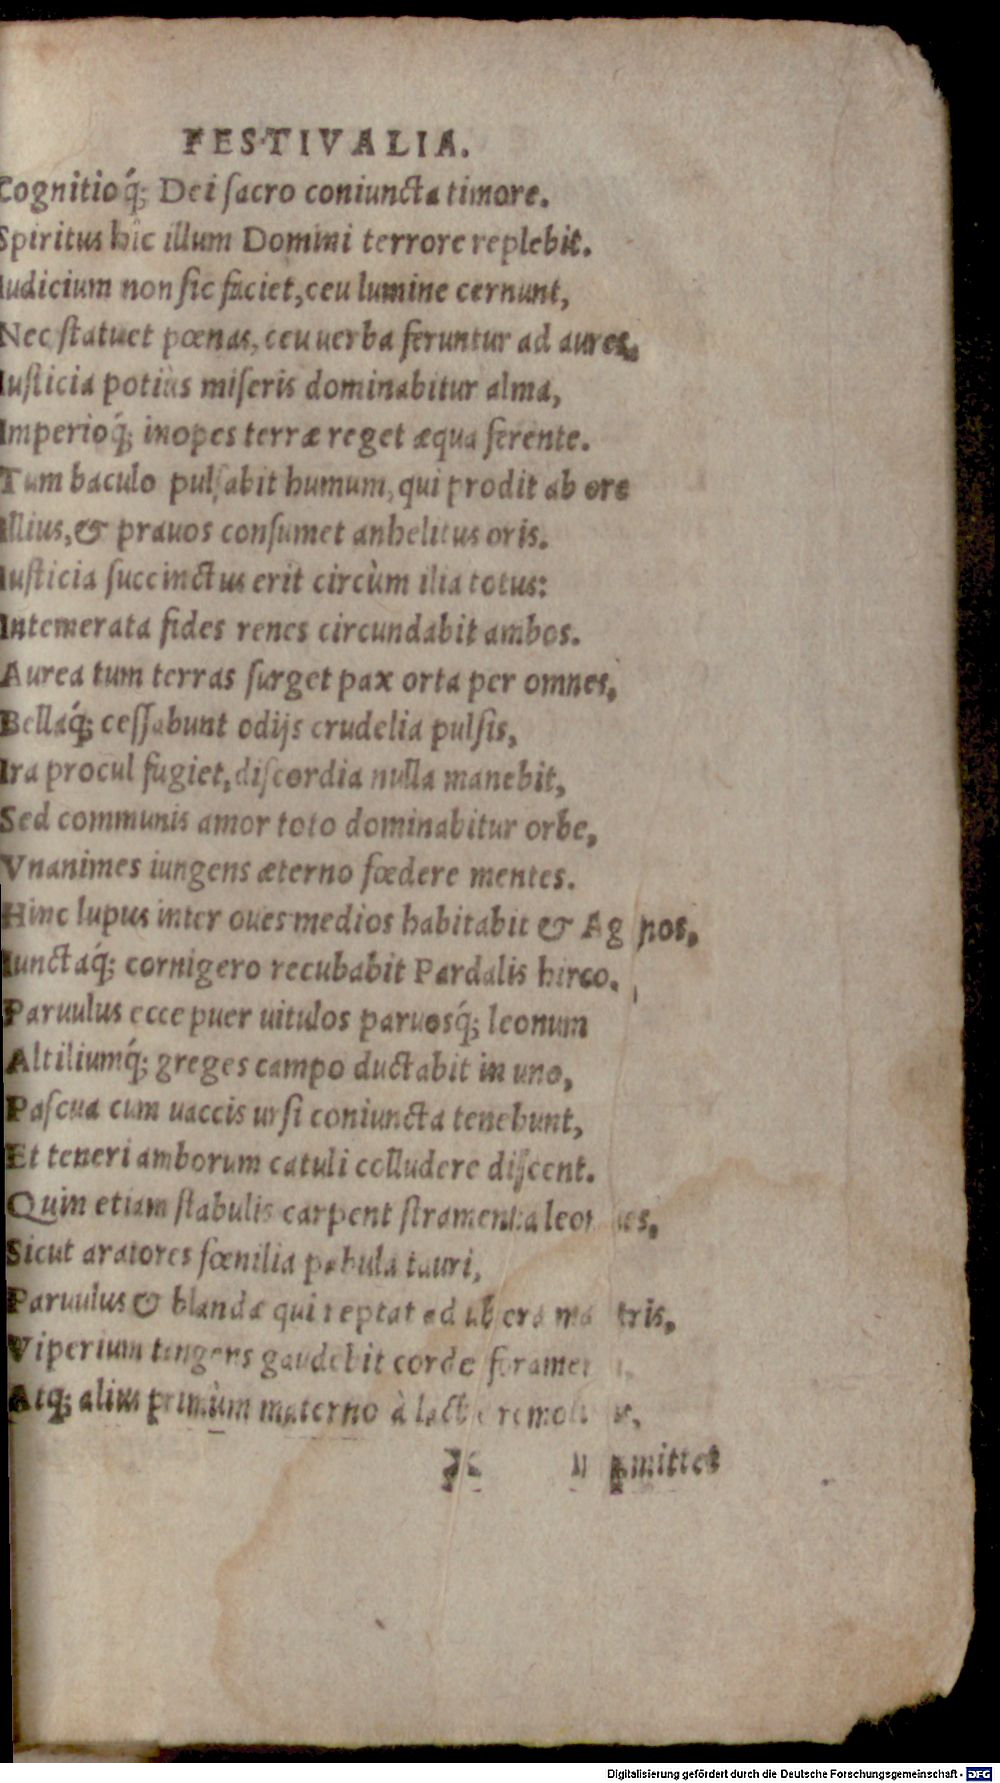 FESTIVALIA.
Cognitioq́; Dei ſacro coniuncta timore.
Spiritus hîc illum Domini terrore replebit.
Iudicium non ſic faciet, ceu lumine cernunt,
Nec ſtatuet pœnas, ceu uerba feruntur ad aures.
Iuſticia potiùs miſeris dominabitur alma,
Imperioq́; inopes terræ reget æqua ferente.
Tum baculo pulſabit humum, qui prodit ab ore
Illius, & prauos conſumet anhelitus oris.
Iuſticia ſuccinctus erit circùm ilia totus:
Intemerata fides renes circundabit ambos.
Aurea tum terras ſurget pax orta per omnes,
Bellaq́; ceſſabunt odijs crudelia pulſis,
Ira procul fugiet, diſcordia nulla manebit,
Sed communis amor toto dominabitur orbe,
Vnanimes iungens æterno fœdere mentes.
Hinc lupus inter oues medios habitabit & Agnos,
Iunctaq́; cornigero recubabit Pardalis hirco.
Paruulus ecce puer uitulos paruosq́; leonum
Altiliumq́; greges campo ductabit in uno,
Paſcua cum uaccis urſi coniuncta tenebunt,
Et teneri amborum catuli colludere diſcent.
Quin etiam ſtabulis carpent ſtramenta leones,
Sicut aratores fœnilia pabula tauri,
Paruulus & blandæ qui reptat ad ubera matris,
Viperium tangens gaudebit corde foramen
Atq; alius primùm materno à lacte remotus,
mittet